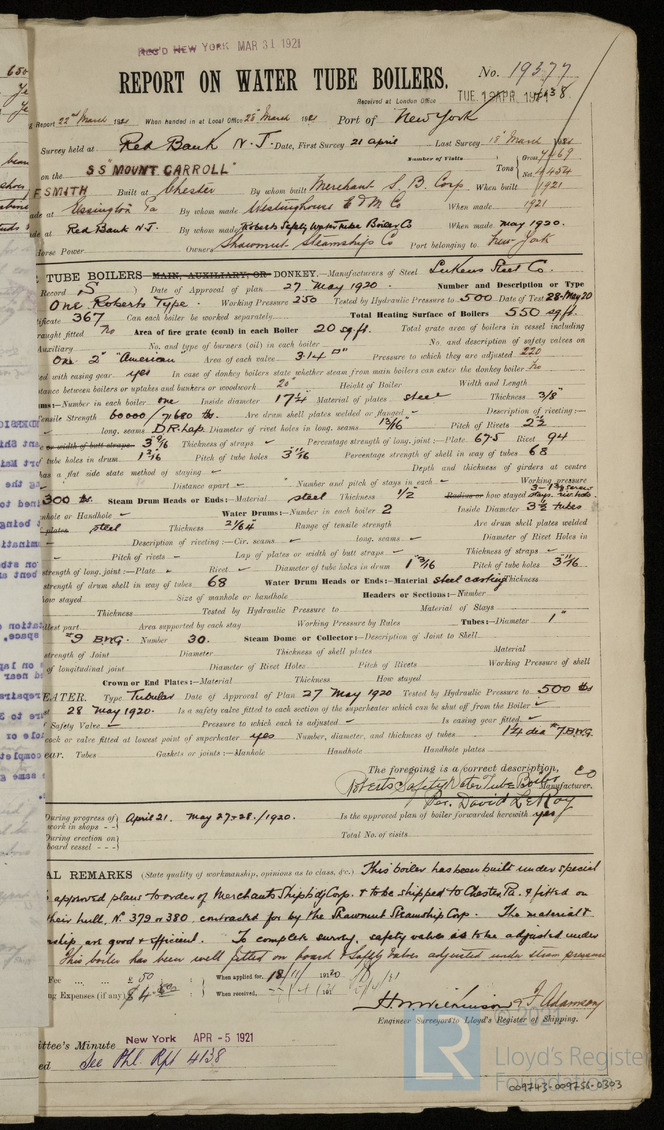 REC'D NEW YORK MAR 31 1921
REPORT ON WATER TUBE BOILERS. No. 19377
Received at London Office TUE. 12 APR. 1921 4138
Report 22nd March 1921 When handed in at Local Office 28 March 1921 Port of New York
Survey held at Red Bank N.J. Date, First Survey 21 April Last Survey 18 March 1921
Number of Visits
on the SS "MOUNT CARROLL" Tons Gross 7469 Net 4454
F. SMITH Built at Chester By whom built Merchant S. B. Corp. When built 1921
made at Essington Pa By whom made Westinghouse E & M Co When made 1921
made at Red Bank N.J. By whom made Roberts Safety Water Tube Boiler Co When made May 1920.
Horse Power Owners Shawmut Steamship Co Port belonging to New York
TUBE BOILERS MAIN, AUXILIARY, OR DONKEY.—Manufacturers of Steel Lukens Steel Co.
Record S Date of Approval of plan 27 May 1920. Number and Description or Type
One Roberts Type. Working Pressure 250 Tested by Hydraulic Pressure to 500 Date of Test 28 May 20
tificate 367 Can each boiler be worked separately Total Heating Surface of Boilers 550 sq ft.
raught fitted No Area of fire grate (coal) in each Boiler 20 sq. ft. Total grate area of boilers in vessel including
Auxiliary No. and type of burners (oil) in each boiler No. and description of safety valves on
One 2" "American" Area of each valve 3.14 □" Pressure to which they are adjusted 220
ed with easing gear yes In case of donkey boilers state whether steam from main boilers can enter the donkey boiler No
stance between boilers or uptakes and bunkers or woodwork 20" Height of Boiler Width and Length
ms:—Number in each boiler one Inside diameter 17¼ Material of plates steel Thickness 3/8"
Tensile Strength 60000/71680 lbs. Are drum shell plates welded or flanged - Description of riveting:—
long. seams D.R. lap. Diameter of rivet holes in long. seams 13/16" Pitch of Rivets 2½
or width of butt straps 3 9/16 Thickness of straps - Percentage strength of long. joint:—Plate 67.5 Rivet 94
tube holes in drum 1 3/16 Pitch of tube holes 3 11/16 Percentage strength of shell in way of tubes 68
has a flat side state method of staying - Depth and thickness of girders at centre
Distance apart - Number and pitch of stays in each - Working pressure
300 lbs. Steam Drum Heads or Ends:—Material steel Thickness 1/2 Radius or how stayed
nhole or Handhole - Water Drums:—Number in each boiler 2 Inside Diameter 3½ tubes
plates steel Thickness 21/64 Range of tensile strength Are drum shell plates welded
- Description of riveting:—Cir. seams - long. seams - Diameter of Rivet Holes in
- Pitch of rivets - Lap of plates or width of butt straps - Thickness of straps -
strength of long. joint:—Plate - Rivet - Diameter of tube holes in drum 1 3/16 Pitch of tube holes 3 11/16
strength of drum shell in way of tubes 68 Water Drum Heads or Ends:—Material Steel casting Thickness
how stayed Size of manhole or handhole Headers or Sections:—Number
Thickness Tested by Hydraulic Pressure to Material of Stays
llest part Area supported by each stay Working Pressure by Rules Tubes:—Diameter 1"
#9 BWG. Number 30. Steam Dome or Collector:—Description of Joint to Shell
strength of Joint Diameter Thickness of shell plates Material
of longitudinal joint Diameter of Rivet Holes Pitch of Rivets Working Pressure of shell
Crown or End Plates:—Material Thickness How stayed
EATER. Type Tubular Date of Approval of Plan 27 May 1920 Tested by Hydraulic Pressure to 500 lbs
28 May 1920. Is a safety valve fitted to each section of the superheater which can be shut off from the Boiler -
Safety Valve - Pressure to which each is adjusted - Is easing gear fitted -
cock or valve fitted at lowest point of superheater yes Number, diameter, and thickness of tubes 1¼ dia #7 BWG.
ear. Tubes Gaskets or joints:—Manhole Handhole Handhole plates
The foregoing is a correct description,
Roberts Safety Water Tube Boiler Co Manufacturer.
Per. David LeRoy
During progress of work in shops - - April 21. May 27 & 28./1920. Is the approved plan of boiler forwarded herewith yes
During erection on board vessel - - - Total No. of visits
AL REMARKS (State quality of workmanship, opinions as to class, &c.) This boiler has been built under special
approved plans to order of Merchants Shipbdg Corp. & to be shipped to Chester Pa. & fitted on
their hull. No 379 or 380, contracted for by the Shawmut Steamship Corp. The material &
ship, are good & efficient. To complete survey, safety valves as to be adjusted under
This boiler has been well fitted on board & Safety Valves adjusted under steam pressure
Fee ... ... £ 50 When applied for, 18/11/1920
ng Expenses (if any) $4.00 When received, 191
H M Wilkinson & F. Adamson
Engineer Surveyors to Lloyd's Register of Shipping.
ittee's Minute New York APR -5 1921
ed See Phl. Rpt 4138
© 2021
LR Lloyd's Register
Foundation
009743-009756-0303